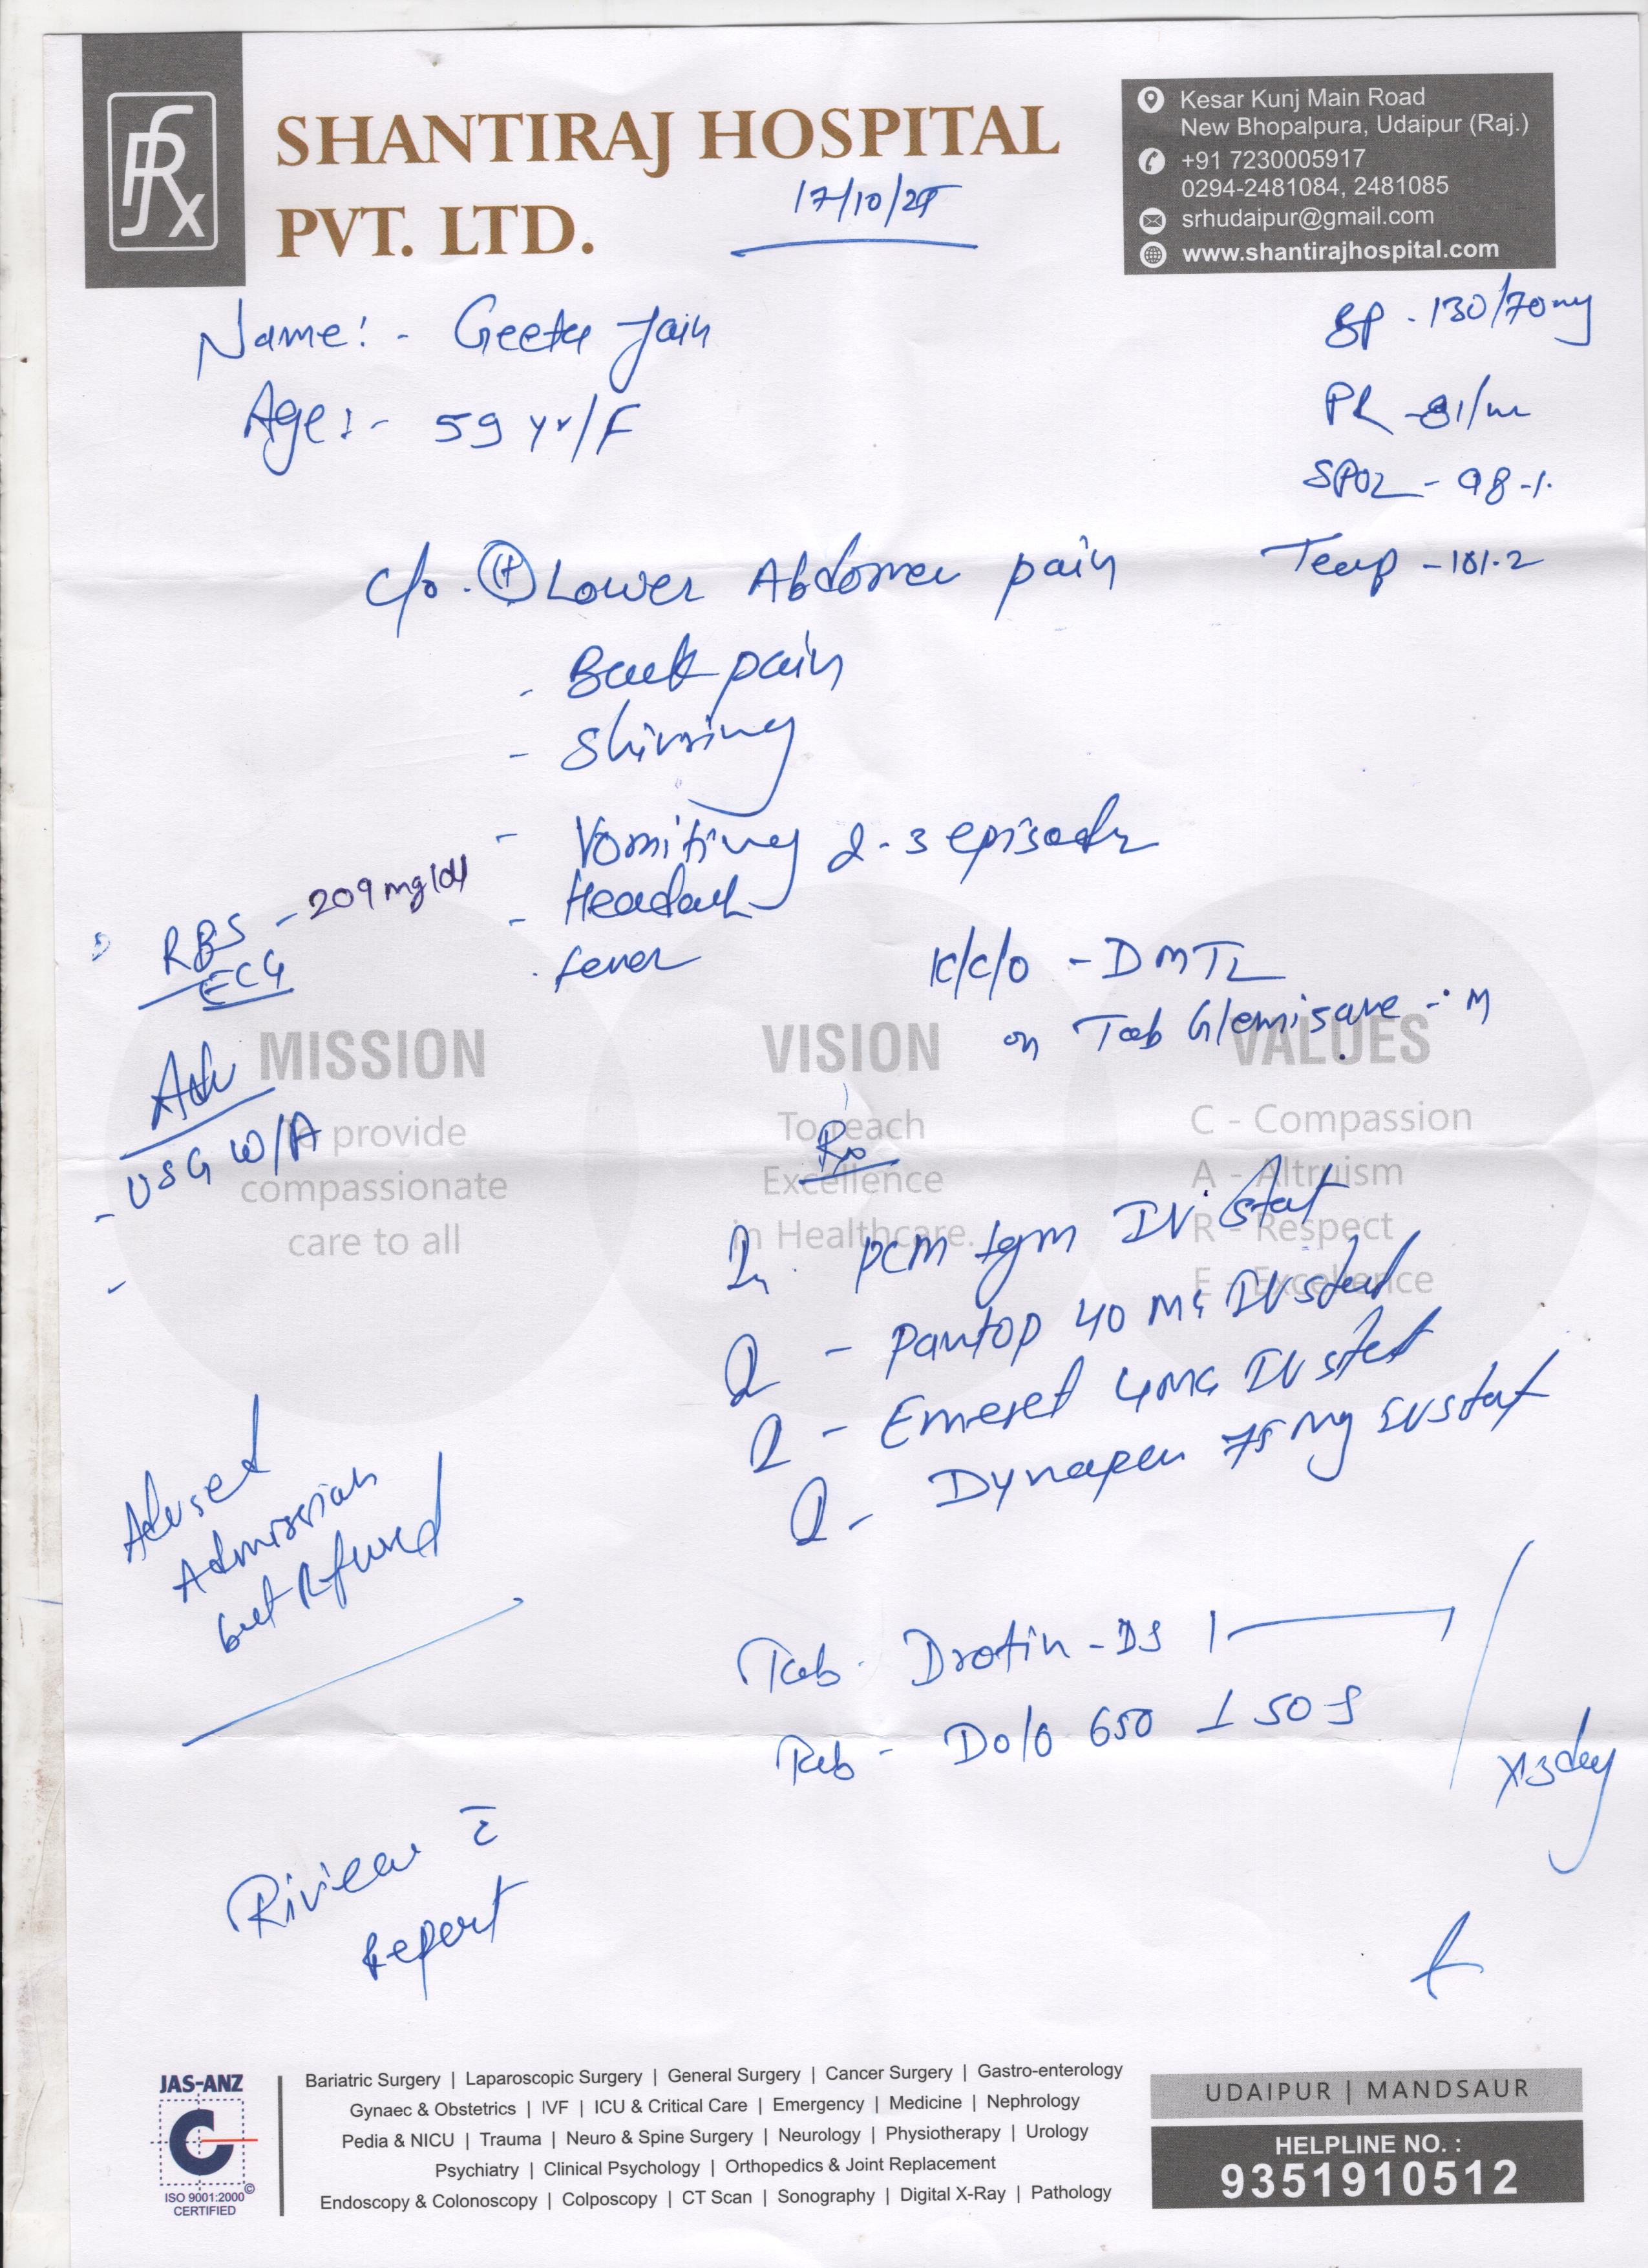 SHANTIRAJ HOSPITAL
PVT. LTD.
Kesar Kunj Main Road
New Bhopalpura, Udaipur (Raj.)
+91 7230005917
0294-2481084, 2481085
srhudaipur@gmail.com
www.shantirajhospital.com
17/10/
Name:- Geeta Jain
Age:- 59 yr/F
BP - 130/70
PR - 81/m
SPO2 - 98 %
Temp - 101.2
C/o. Lower Abdomen pain
- Back pain
- Shivring
- Vomiting 2-3 episode
- Headach
- fever
RBS - 209 mg/dl
ECG
K/C/O - DMT2
on Tab Glemisave - M
Adv
- USG W/A
-
MISSION
To provide
compassionate
care to all
VISION
To reach
Excellence
in Healthcare.
VALUES
C - Compassion
A - Altruism
R - Respect
E - Excellence
Rx
PCM 1gm IV Stat
- Pantop 40 MG IV stat
- Emeset 4MG IV stat
- Dynapen 75 Mg IV stat
Advsed
Admission
but Rfused
Tab. Drotin-DS 1 — 1
Tab - Dolo 650 1 SOS
x 3 day
Riview c̄
Report
JAS-ANZ
C
ISO 9001:2000
CERTIFIED
Bariatric Surgery | Laparoscopic Surgery | General Surgery | Cancer Surgery | Gastro-enterology
Gynaec & Obstetrics | IVF | ICU & Critical Care | Emergency | Medicine | Nephrology
Pedia & NICU | Trauma | Neuro & Spine Surgery | Neurology | Physiotherapy | Urology
Psychiatry | Clinical Psychology | Orthopedics & Joint Replacement
Endoscopy & Colonoscopy | Colposcopy | CT Scan | Sonography | Digital X-Ray | Pathology
UDAIPUR | MANDSAUR
HELPLINE NO. :
9351910512